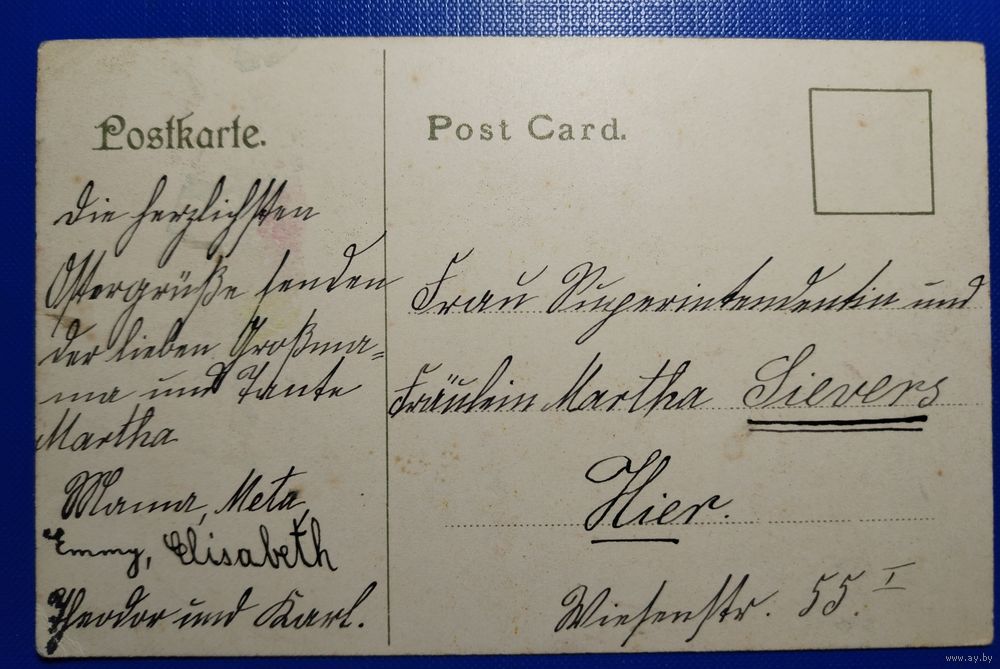 Postkarte.
Die herzlichsten
Ostergrüße senden
der lieben Großma=
ma und Tante
Martha
Mama, Meta,
Emmy, Elisabeth
Theodor und Karl.
Post Card.
Frau Superintendentin und
Fräulein Martha Sievers
Hier.
Wiesenstr. 55 I
www.ay.by